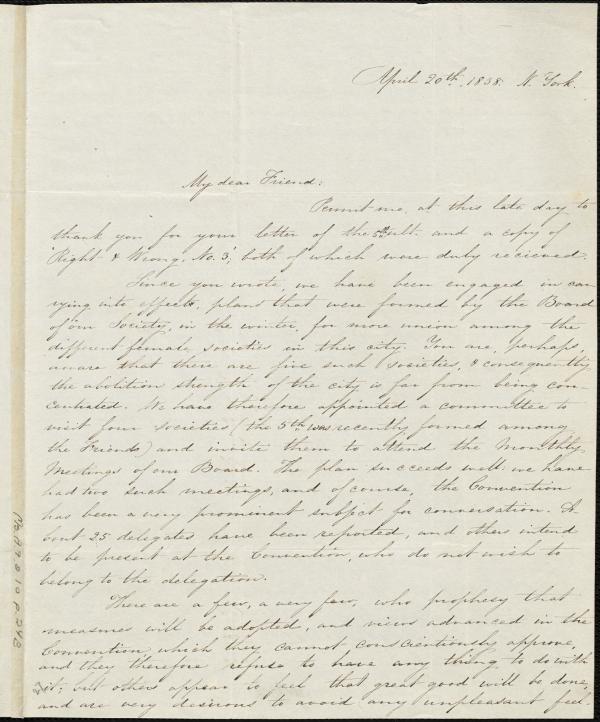 April 20th. 1838. N. York.
My dear Friend:
Permit me, at this late day to
thank you for your letter of the 5th ult. and a copy of
'Right & Wrong, No. 3,' both of which were duly recieved.
Since you wrote, we have been engaged in car
rying into effects, plans that were formed by the Board
of our Society, in the winter, for more union among the
different female societies in this city. You are, perhaps,
aware that there are five such societies, & consequently
the abolition strength of the city is far from being con-
centrated. We have therefore appointed a committee to
visit four societies (the 5th. was recently formed among
the Friends) and invite them to attend the Monthly
Meetings of our Board. The plan succeeds well: we have
had two such meetings, and of course, the Convention
has been a very prominent subject for conversation. A-
bout 25 delegates have been reported, and others intend
to be present at the Convention, who do not wish to
belong to the delegation.
There are a few, a very few, who prophesy that
measures will be adopted, and views advanced in the
Convention, which they cannot conscientiously approve,
and they therefore refuse to have any thing to do with
it; but others appear to feel that great good will be done,
and are very desirous to avoid any unpleasant feel-
Ms.A.9.2.10 p.24B